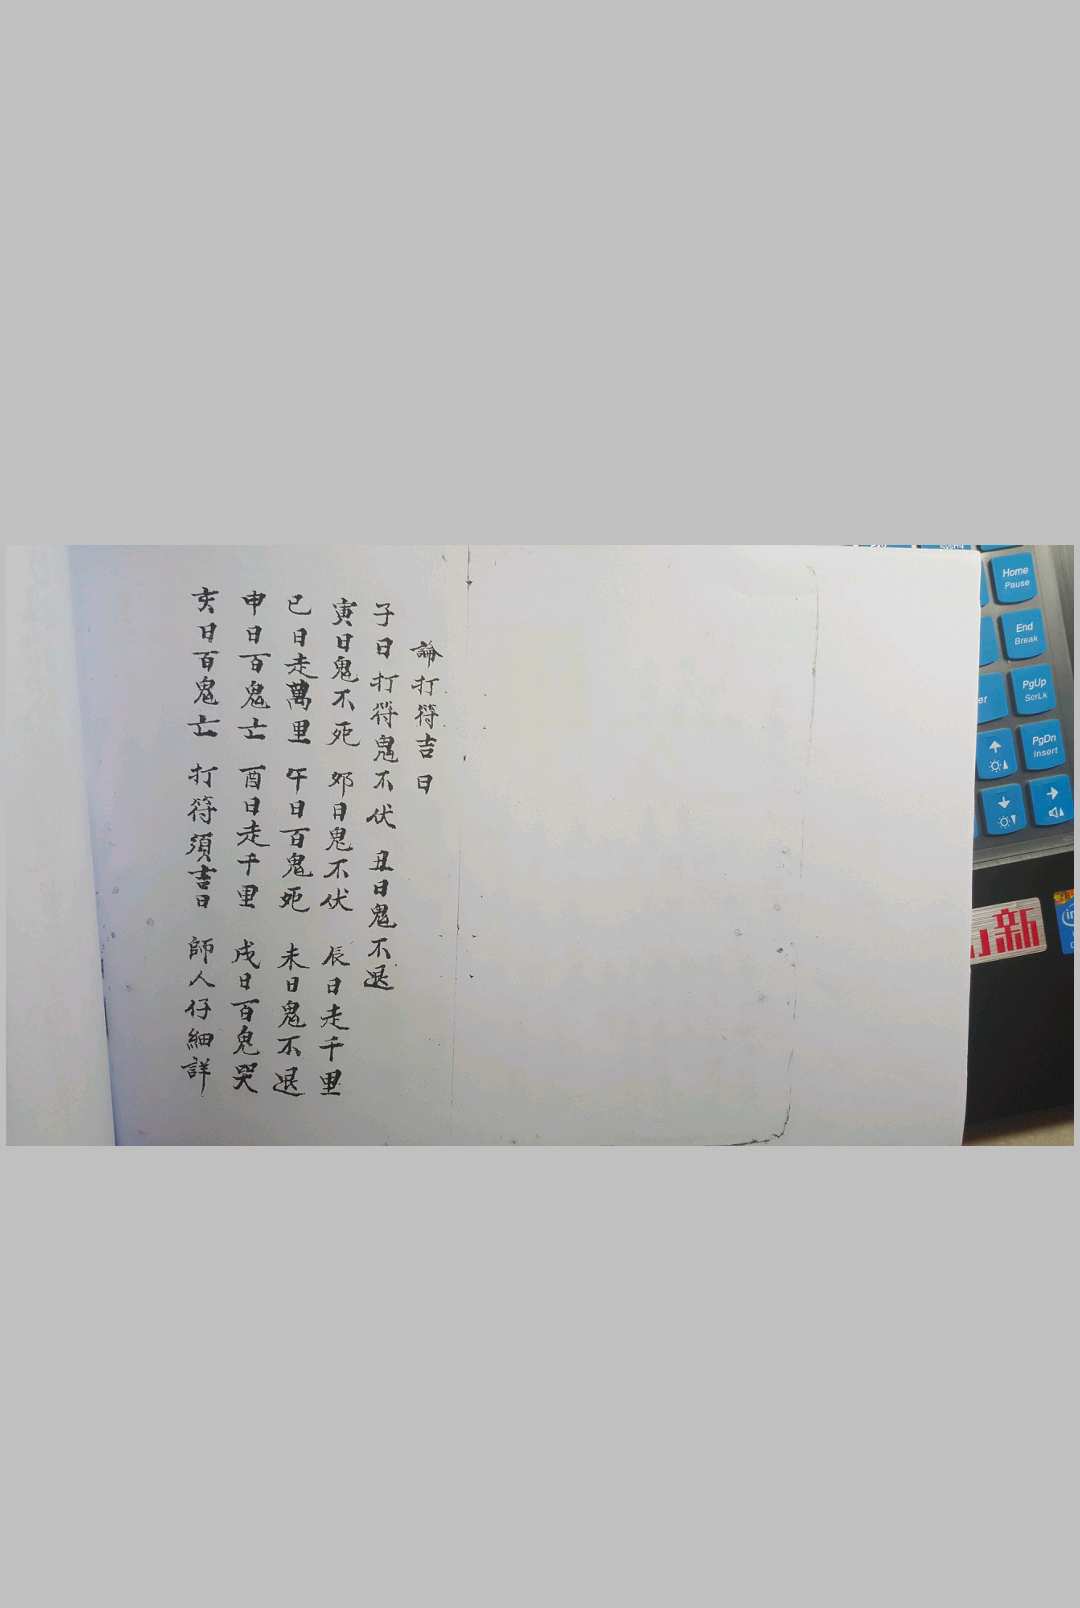 論打符吉日
子日打符鬼不伏 丑日鬼不退
寅日鬼不死 夘日鬼不伏 辰日走千里
巳日走萬里 午日百鬼死 未日鬼不退
申日百鬼亡 酉日走千里 戍日百鬼哭
亥日百鬼亡 打符須吉日 師人仔細詳
Home
Pause
End
Break
PgUp
ScrLk
PgDn
Insert
新